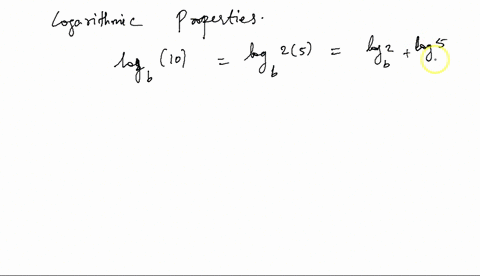 Logarithmic Properties.
log_b (10) = log_b 2(5) = log_b 2 + log 5